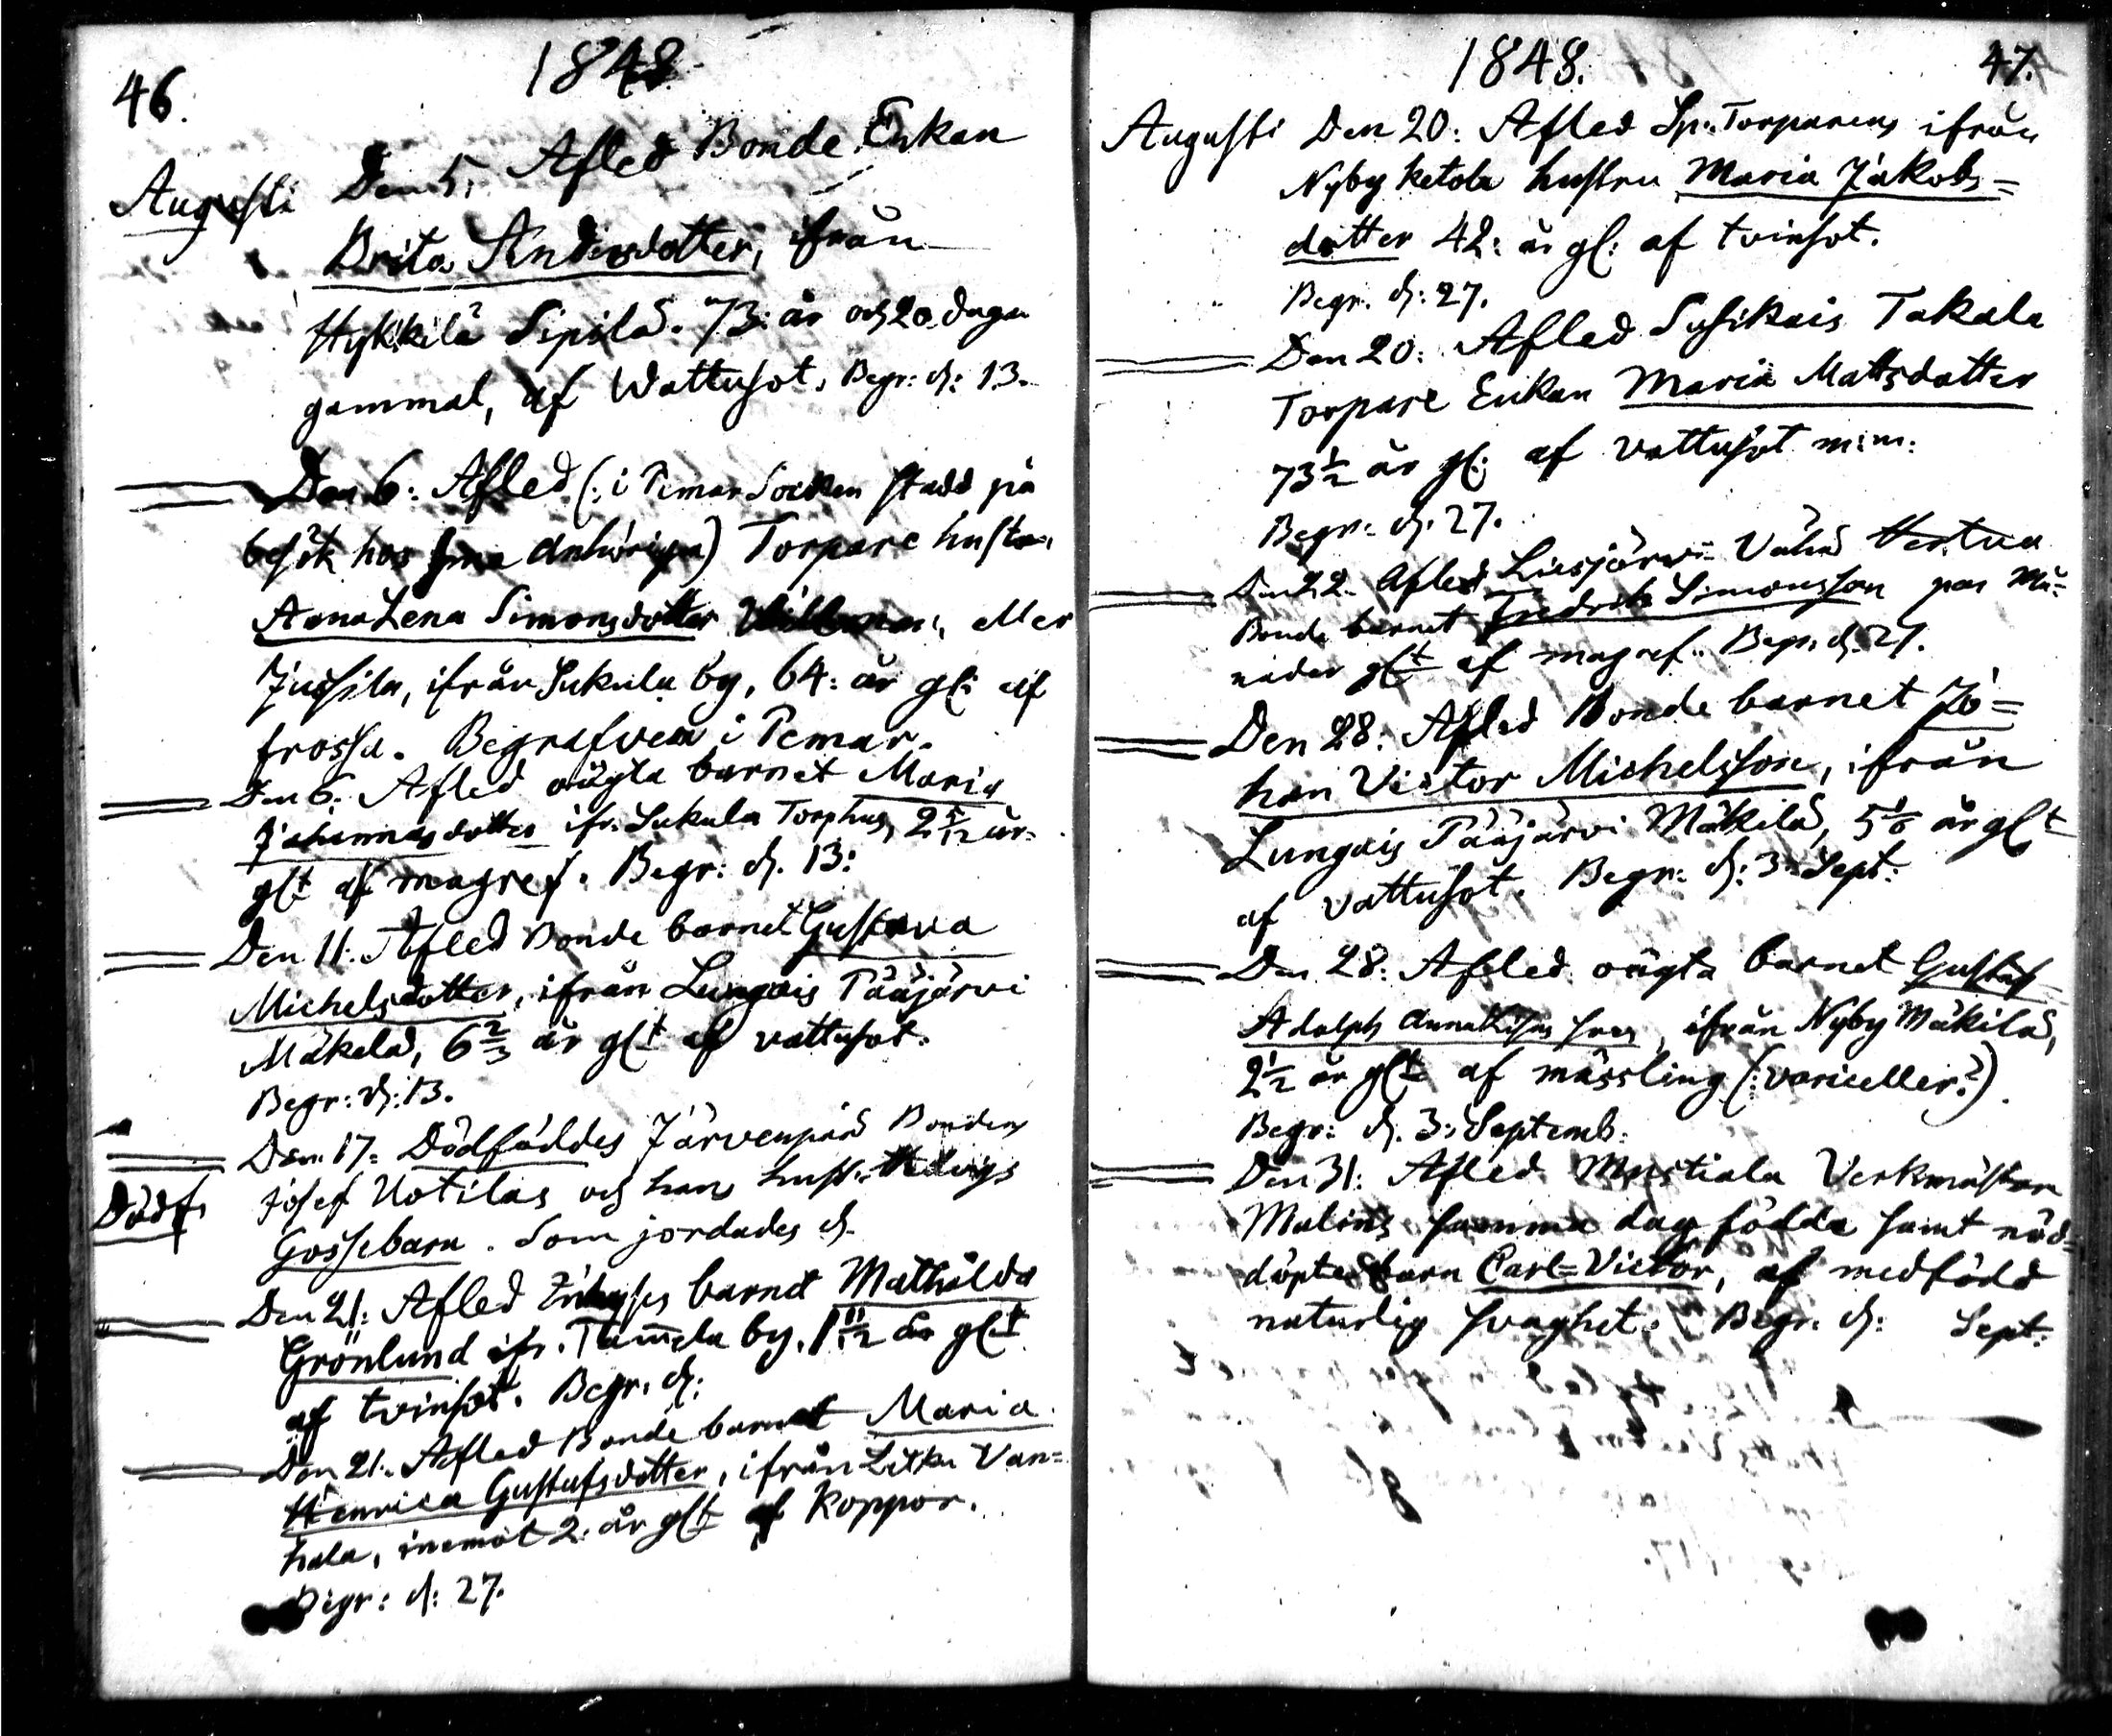 46.
1848
Augusti Den 5. Afled Bonde Enkan
Brita Andersdotter, ifrån
Hykkilä Sipilä. 73: år och 20 dagar
gammal, af Wattusot. Begr: d: 13.
Den 6: Afled (: i Pemar Socken stadd på
besök hos sina anhöriga) Torpare hustru
Anna Lena Simonsdotter eller
Jussila, ifrån Sukula by, 64: år gl: af
frossa. Begrafven i Pemar.
Den 6: Afled oägta barnet Maria
Johannasdotter ifr. Sukula Torphus, 2 5/12 år
glt af magref. Begr: d. 13:
Den 11: Afled Bonde barnet Gustava
Michelsdotter, ifrån Lungois Pääjärvi
Mäkelä, 6 2/3 år glt af vattusot.
Begr: d: 13.
Den 17: Dödföddes Järvenpää Bonden
Dödf. Josef Uotilas och hans hust: Hedvigs
Gossebarn. Som jordades d.
Den 21: Afled barnet Mathilda
Grönlund ifr. Tam̅ela by. 1 11/12 år glt
af tvinsot. Begr. d:
Den 21: Afled Bonde barnet Maria
Henrica Gustafsdotter, ifrån Letku Van=
hala, inemot 2: år glt af Koppor.
Begr: d: 27.
1848. 47.
Augusti Den 20: Afled Sp: Torparens ifrån
Nyby Ketola hustru Maria Jakobs=
dotter 42: år gl: af tvinsot.
Begr. d: 27.
Den 20: Afled Susikais Takala
Torpare Enkan Maria Mattsdotter
73 1/2 år gl: af vattusot m:m:
Begr: d: 27.
Den 22. Afled Liesjärvi Vähä Hertua
Bonde barnet Fredrik Simonsson par Må=
nader glt af magref. Begr. d. 27.
Den 28: Afled Bonde barnet Jo=
han Victor Michelsson, ifrån
Lungois Pääjärvi Mäkilä, 5 1/6 år glt
af vattusot. Begr: d: 3. Sept:
Den 28: Afled oägta barnet Gustaf
Adolph Annalisas son, ifrån Nyby Mäkilä,
2 1/2 år glt af mässling (: varieeller?)
Begr: d. 3: Septemb:
Den 31: Afled Mustiala Verkmästar
Malins samma dag födda samt nöd=
döpte barn Carl=Victor, af medfödd
naturlig svaghet. Begr. d: Sept: